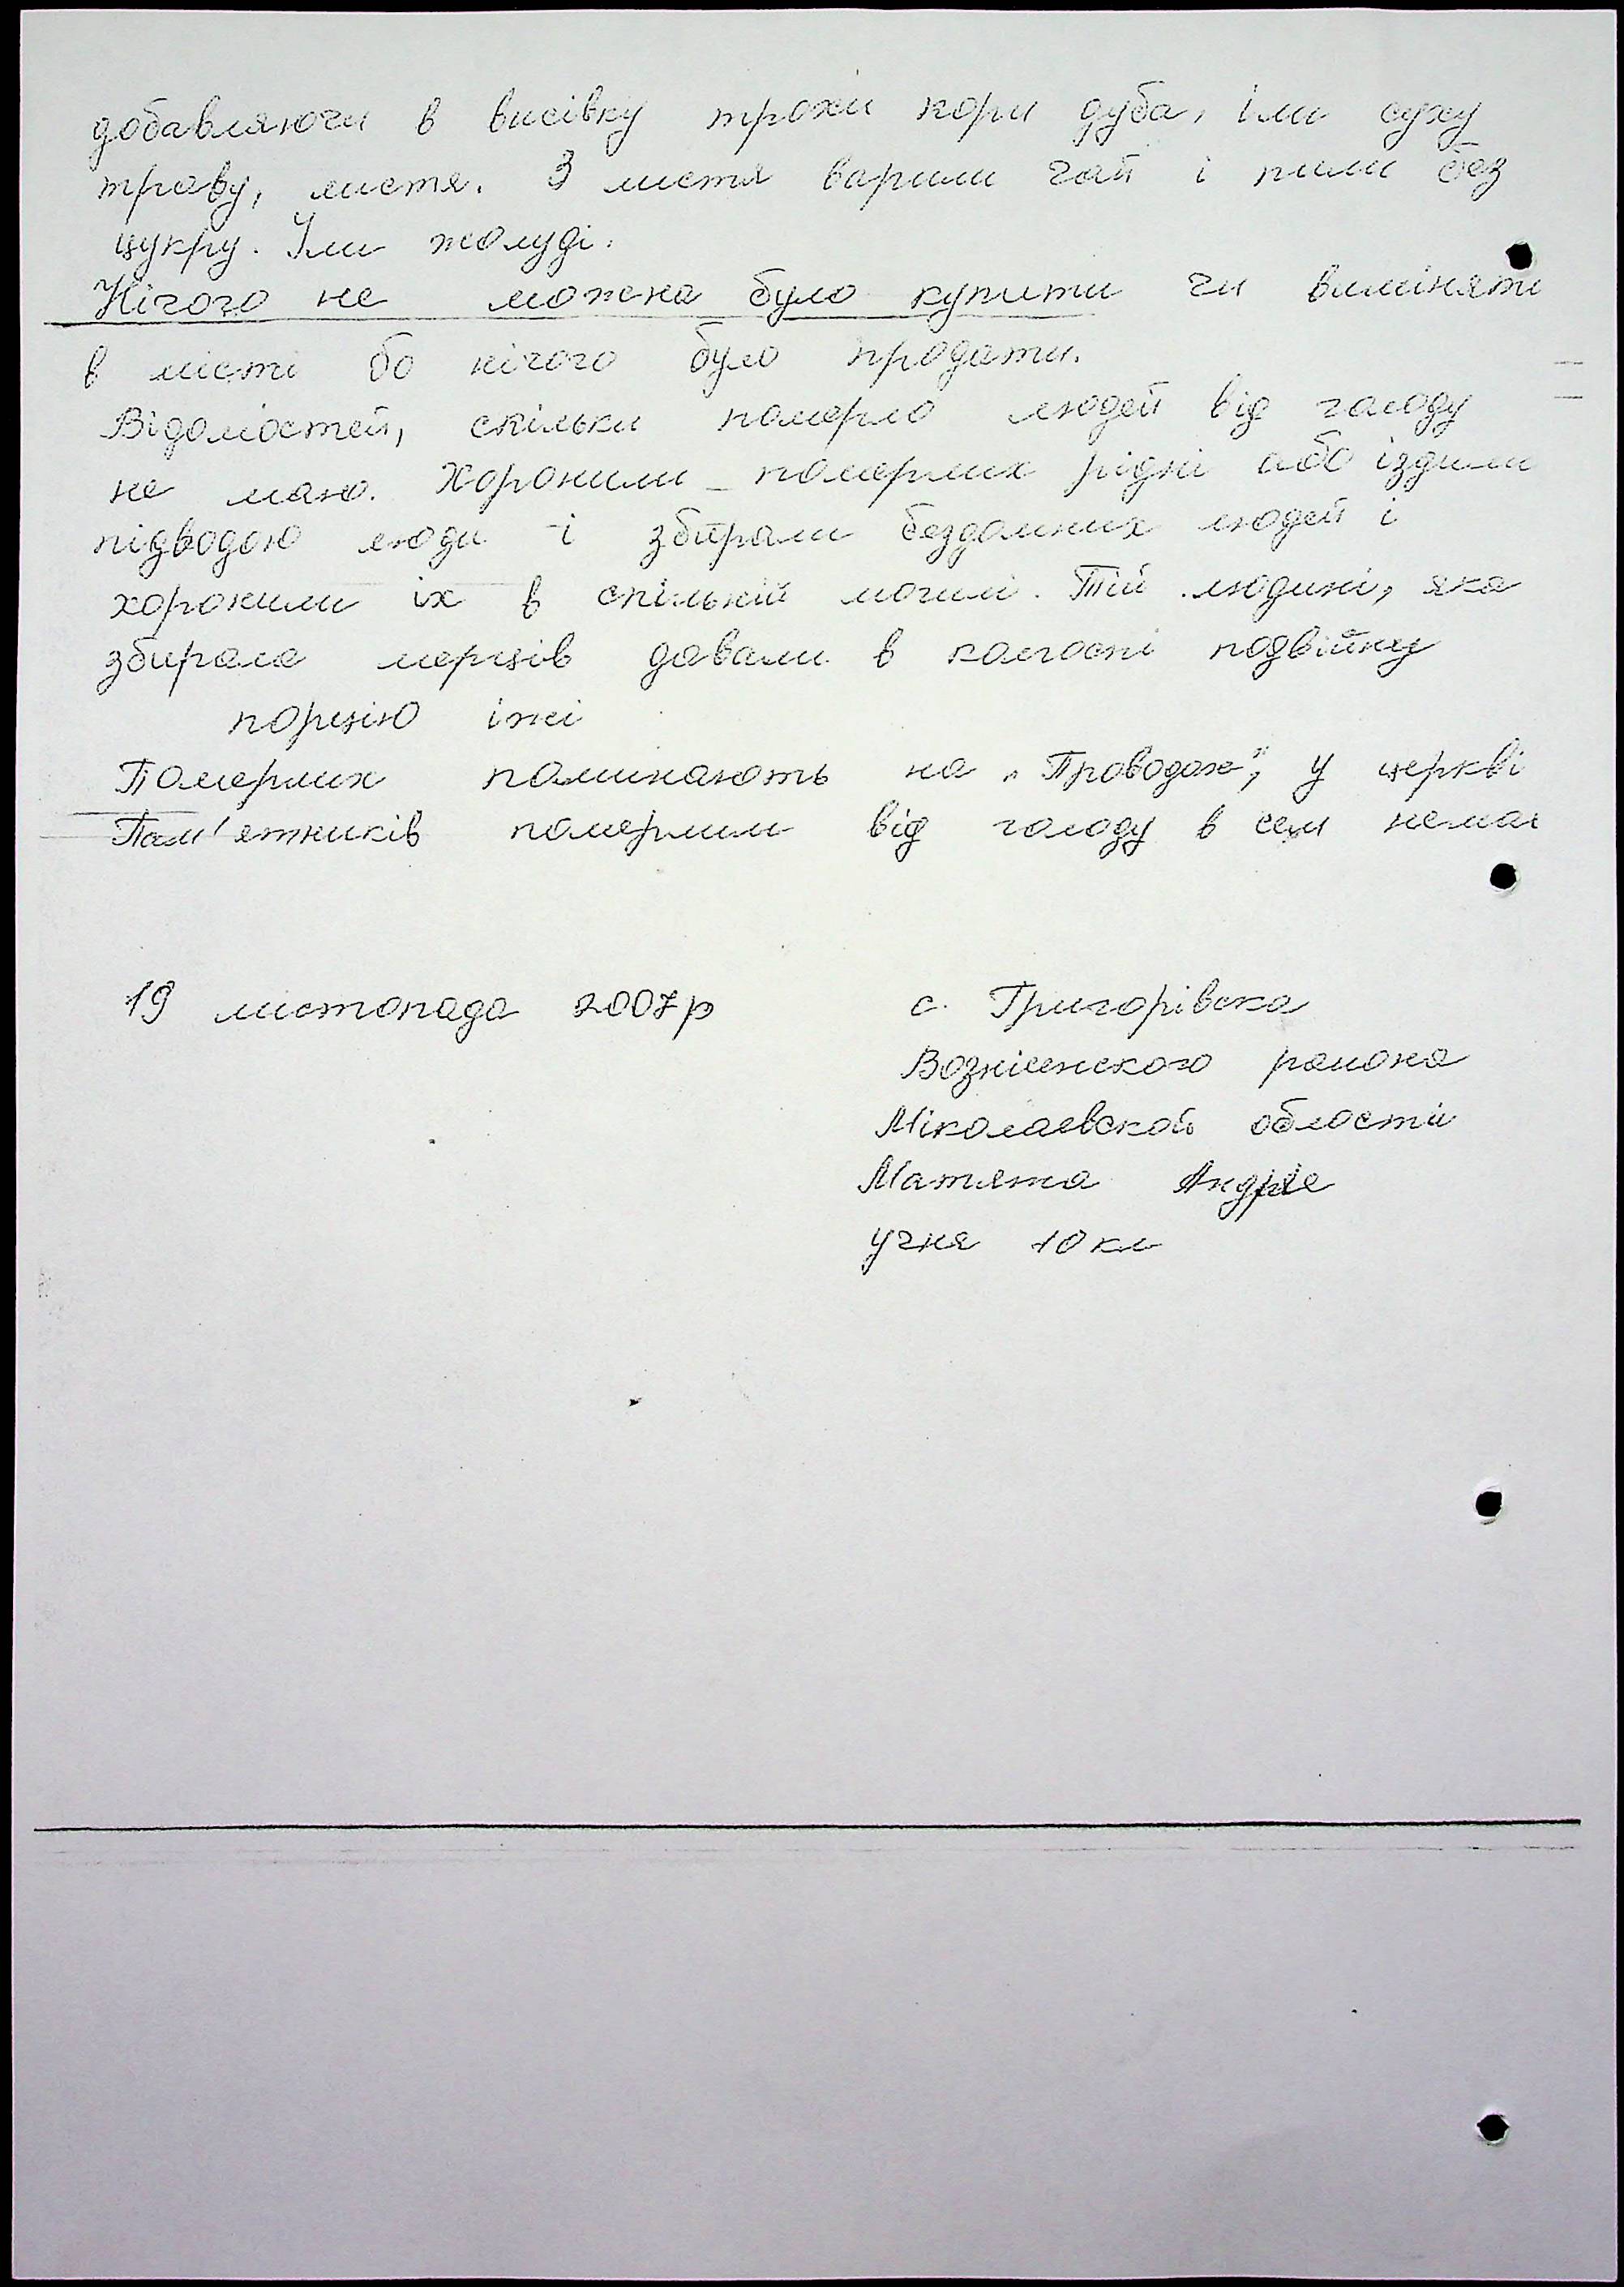 добавляючи в висівку трохи кори дуба, їли суху
траву, листя. З листя варили чай і пили без
цукру. Їли жолуді.
Нічого не можна було купити чи виміняти
в місті бо нічого було продати.
Відомостей, скільки померло людей від голоду
не маю. Хоронили померлих рідні або їздили
підводою люди і збирали бездомних людей і
хоронили їх в спільній могилі. Тій людині, яка
збирала мерців давали в колгоспі подвійну
порцію їжі
Померлих поминають на „Проводах", у церкві
Пам'ятників померлим від голоду в селі немає
19 листопада 2007р
с. Григорівска
Вознісенского района
Міколаевской области
Матята Андрія
учня 10 кл